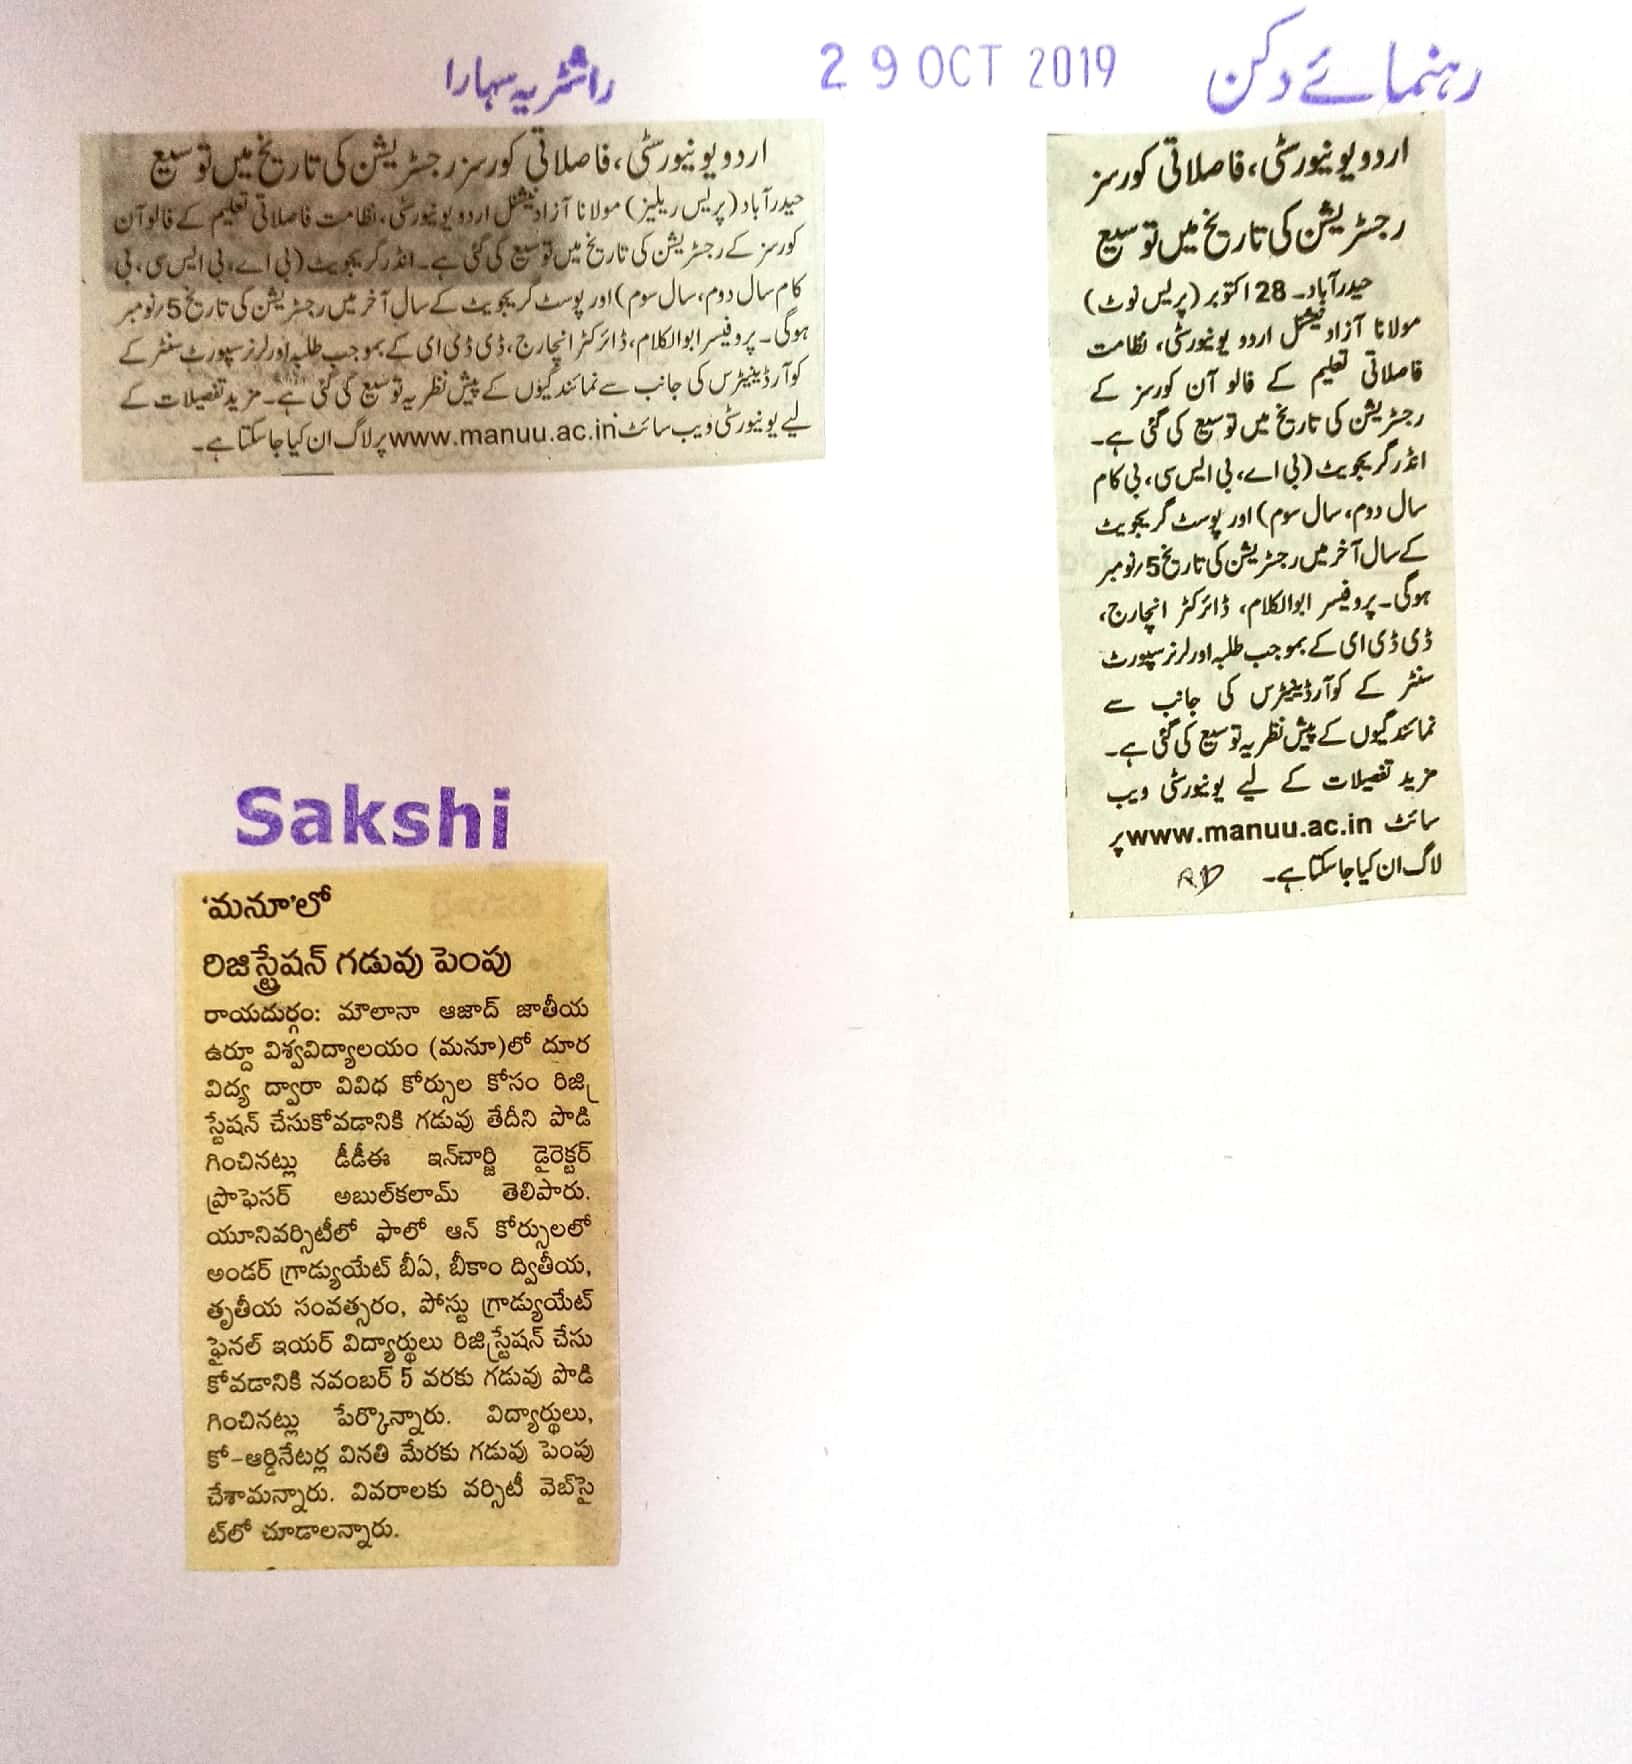 راشٹریہ سہارا
2 9 OCT 2019
رہنمائے دکن
اردو یونیورسٹی، فاصلاتی کورسز رجسٹریشن کی تاریخ میں توسیع
حیدرآباد (پریس ریلیز) مولانا آزاد نیشنل اردو یونیورسٹی، نظامت فاصلاتی تعلیم کے فالو آن
کورسز کے رجسٹریشن کی تاریخ میں توسیع کی گئی ہے۔ انڈر گریجویٹ (بی اے، بی ایس سی، بی
کام سال دوم، سال سوم) اور پوسٹ گریجویٹ کے سال آخر میں رجسٹریشن کی تاریخ 5/نومبر
ہوگی۔ پروفیسر ابوالکلام، ڈائرکٹر انچارج، ڈی ڈی ای کے بموجب طلبہ اور لرنر سپورٹ سنٹر کے
کوآرڈینیٹرس کی جانب سے نمائندگیوں کے پیش نظر یہ توسیع کی گئی ہے۔ مزید تفصیلات کے
لیے یونیورسٹی ویب سائٹ www.manuu.ac.in پر لاگ ان کیا جاسکتا ہے۔
اردو یونیورسٹی، فاصلاتی کورسز
رجسٹریشن کی تاریخ میں توسیع
حیدرآباد۔ 28 اکتوبر (پریس نوٹ)
مولانا آزاد نیشنل اردو یونیورسٹی، نظامت
فاصلاتی تعلیم کے فالو آن کورسز کے
رجسٹریشن کی تاریخ میں توسیع کی گئی ہے۔
انڈر گریجویٹ (بی اے، بی ایس سی، بی کام
سال دوم، سال سوم) اور پوسٹ گریجویٹ
کے سال آخر میں رجسٹریشن کی تاریخ 5/نومبر
ہوگی۔ پروفیسر ابوالکلام، ڈائرکٹر انچارج،
ڈی ڈی ای کے بموجب طلبہ اور لرنر سپورٹ
سنٹر کے کوآرڈینیٹرس کی جانب سے
نمائندگیوں کے پیش نظر یہ توسیع کی گئی ہے۔
مزید تفصیلات کے لیے یونیورسٹی ویب
سائٹ www.manuu.ac.in پر
لاگ ان کیا جاسکتا ہے۔
Sakshi
‘మనూ’లో
రిజిస్ట్రేషన్ గడువు పెంపు
రాయదుర్గం: మౌలానా ఆజాద్ జాతీయ
ఉర్దూ విశ్వవిద్యాలయం (మనూ)లో దూర
విద్య ద్వారా వివిధ కోర్సుల కోసం రిజి
స్ట్రేషన్ చేసుకోవడానికి గడువు తేదీని పొడి
గించినట్లు డీడీఈ ఇన్‌చార్జి డైరెక్టర్
ప్రొఫెసర్ అబుల్‌కలామ్ తెలిపారు.
యూనివర్సిటీలో ఫాలో ఆన్ కోర్సులలో
అండర్ గ్రాడ్యుయేట్ బీఏ, బీకాం ద్వితీయ,
తృతీయ సంవత్సరం, పోస్టు గ్రాడ్యుయేట్
ఫైనల్ ఇయర్ విద్యార్థులు రిజిస్ట్రేషన్ చేసు
కోవడానికి నవంబర్ 5 వరకు గడువు పొడి
గించినట్లు పేర్కొన్నారు. విద్యార్థులు,
కో-ఆర్డినేటర్ల వినతి మేరకు గడువు పెంపు
చేశామన్నారు. వివరాలకు వర్సిటీ వెబ్‌సై
ట్‌లో చూడాలన్నారు.